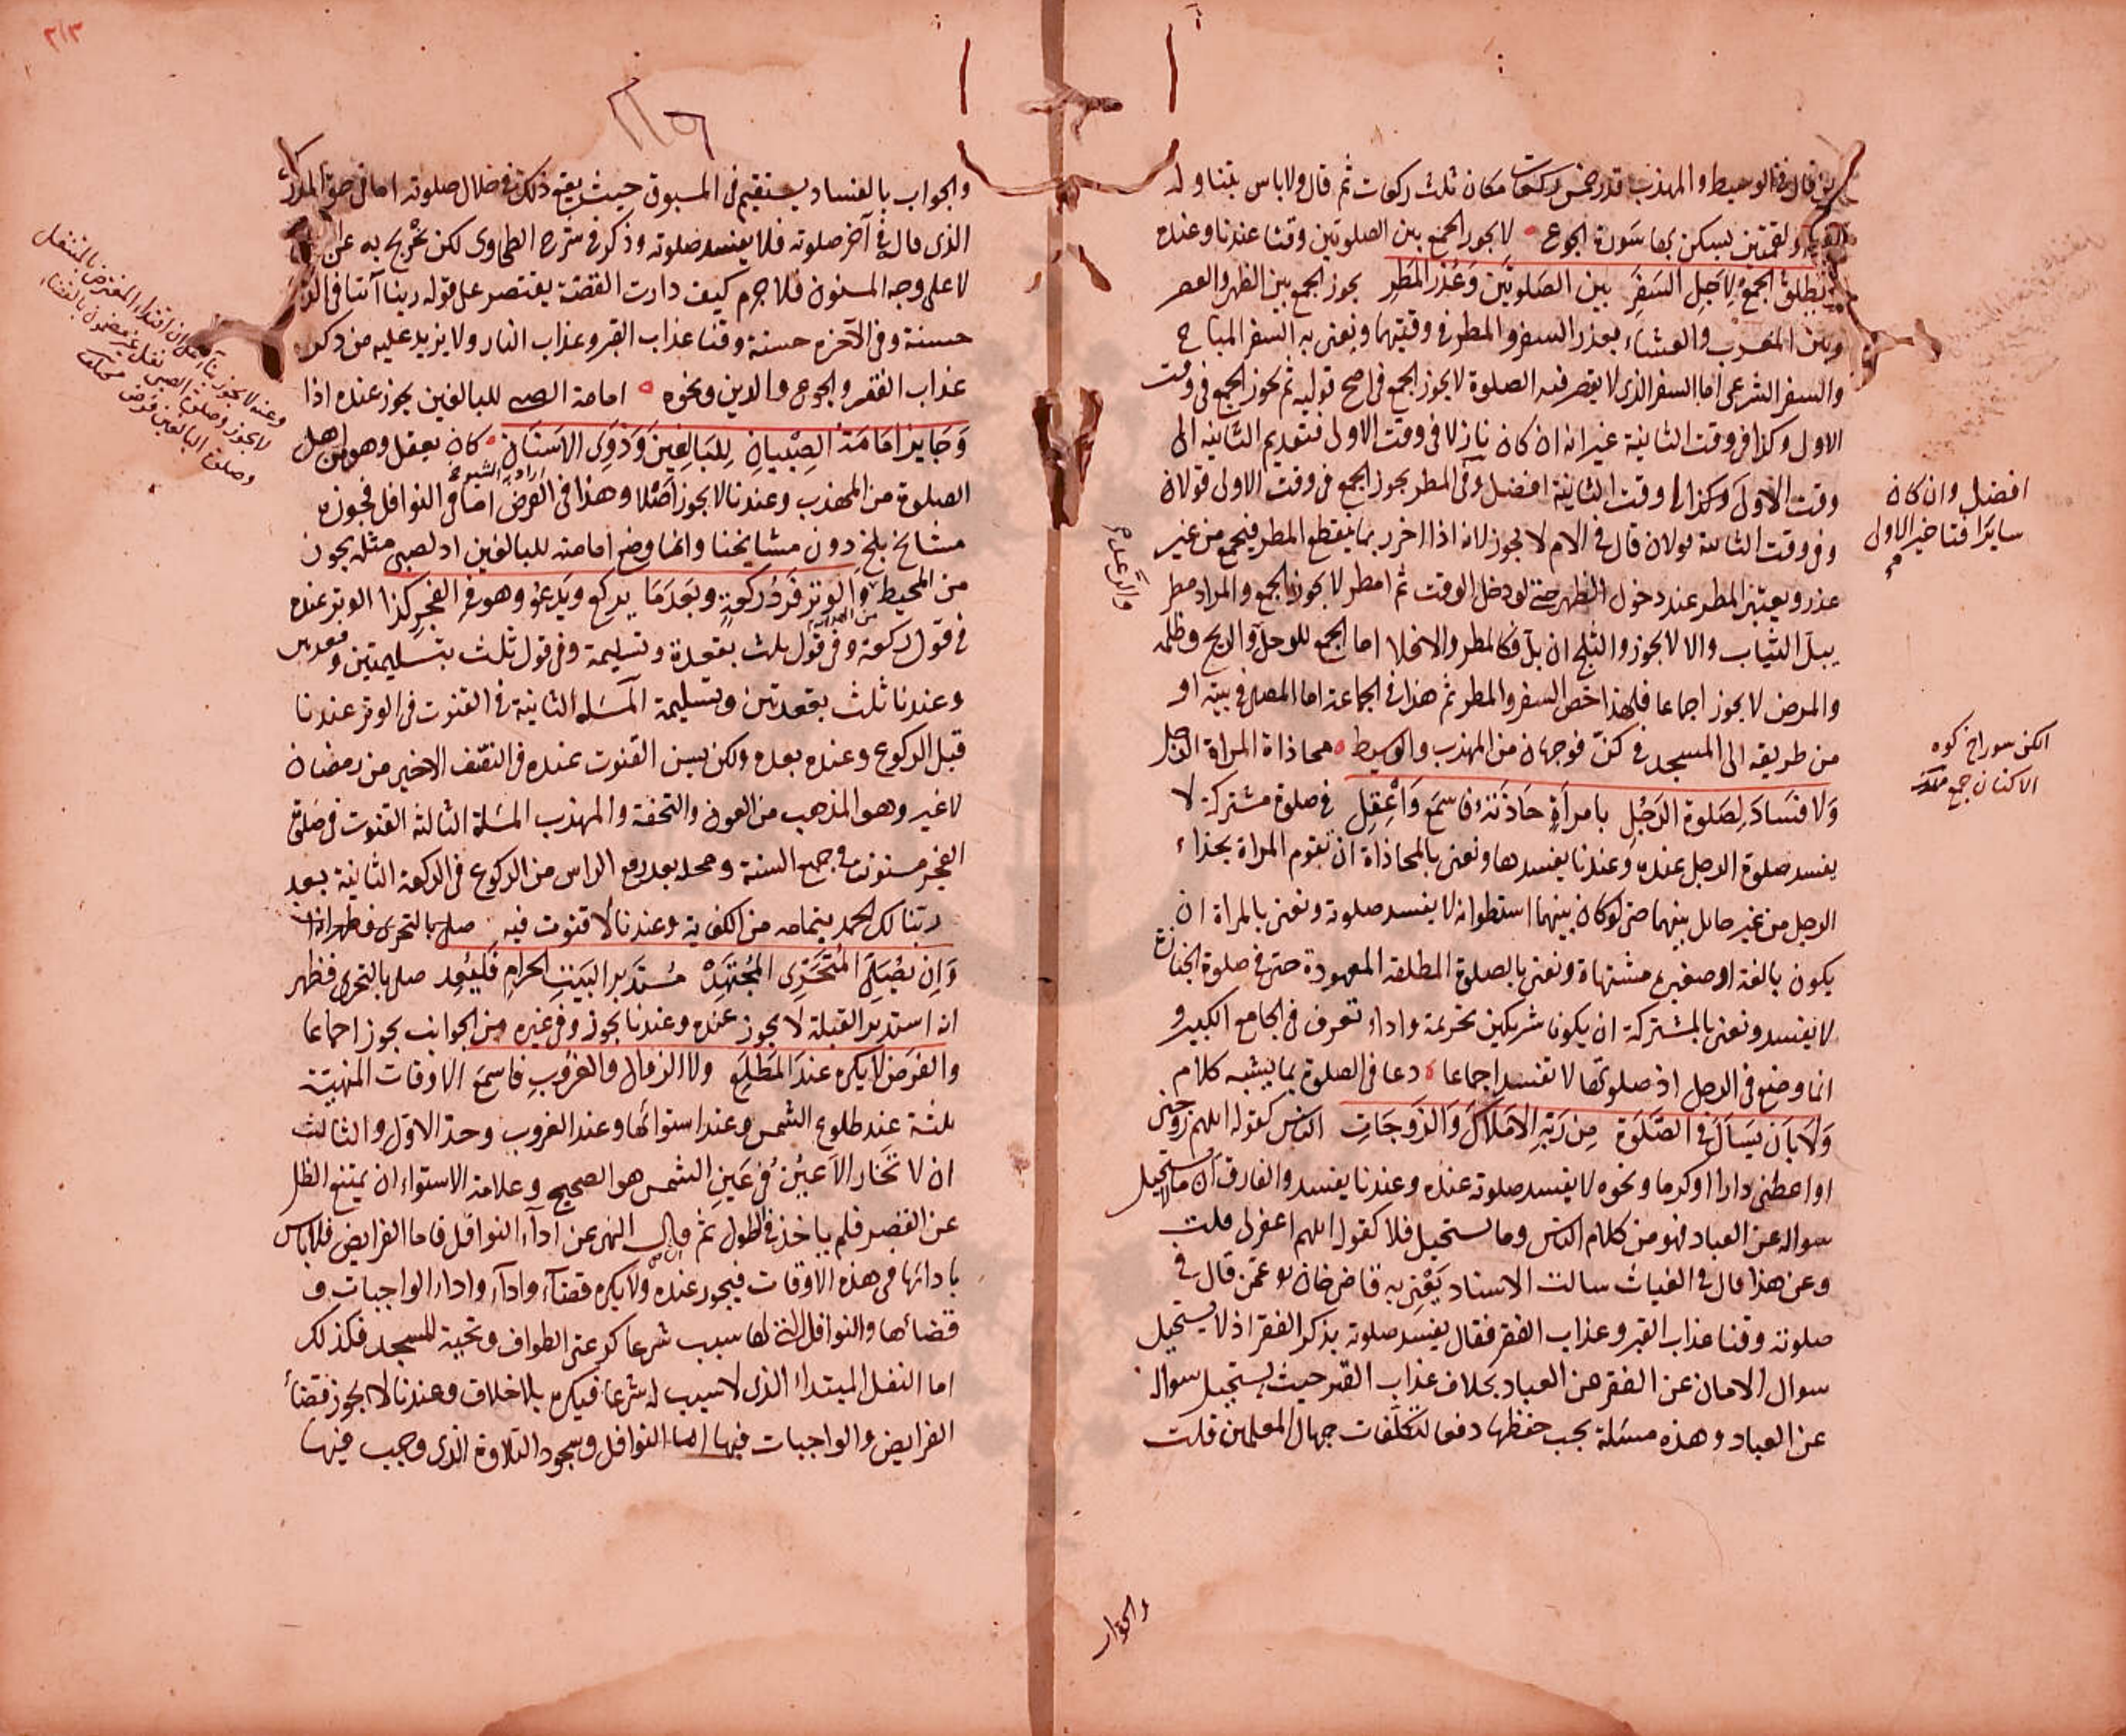 قال في الوسيط والمهذب قدر خمس ركعات مكان ثلث ركعات ثم قال ولا باس بتناوله
ولقمتين يسكن بها سورة الجوع لا يجوز الجمع بين الصلوتين وقتا عندنا وعنده
يطلق الجمع لاجل السفر بين الصلوتين وعذر المطر يجوز الجمع بين الظهر والعصر
وبين المغرب والعشاء بعذر السفر والمطر في وقتيهما ونعني به السفر المباح
والسفر الشرعي اما السفر الذي لا يقصر فيه الصلوة لا يجوز الجمع في اصح قوليه ثم يجوز الجمع في وقت
الاول وكذا في وقت الثانية غير انه ان كان نازلا في وقت الاولى فتقديم الثانية الى
وقت الاولى وكذا الى وقت الثانية افضل وفي المطر يجوز الجمع في وقت الاولى قولان
وفي وقت الثانية قولان قال في الام لا يجوز لانه اذا اخر ربما ينقطع المطر فيجمع من غير
عذر ويعتبر المطر عند دخول الظهر حتى لو دخل الوقت ثم امطر لا يجوز الجمع والمراد مطر
يبل الثياب والا لا يجوز والثلج ان بل فكالمطر والا فلا اما الجمع للوحل والريح وظلمة
والمرض لا يجوز اجماعا فلهذا خص السفر والمطر ثم هذا في الجماعة اما المصلي في بيته او
من طريقه الى المسجد في كن فوجهان من المهذب والوسيط محاذاة المراة الرجل
ولا فساد لصلوة الرجل بامراة حاذته فاسمع واعقل في صلوة مشتركة لا
يفسد صلوة الرجل عنده وعندنا يفسدها ونعني بالمحاذاة ان تقوم المراة بحذاء
الرجل من غير حائل بينهما حتى لو كان بينهما اسطوانة لا يفسد صلوته ونعني بالمراة ان
يكون بالغة او صغيرة مشتهاة ونعني بالصلوة المطلقة المعهودة حتى في صلوة الجنازة
لا يفسد ونعني بالمشتركة ان يكونا شريكين تحريمة واداء تعرف في الجامع الكبير و
انما وضع في الرجل اذ صلوتها لا تفسد اجماعا دعا في الصلوة بما يشبه كلام
ولا بان يسال في الصلوة من ربه الاملاك والزوجات الناس كقوله اللهم زوجني
او اعطني دارا او كرما ونحوه لا يفسد صلوته عنده وعندنا يفسد والفارق ان ما لا يستحيل
سواله عن العباد فهو من كلام الناس وما يستحيل فلا كقوله اللهم اغفر لي قلت
وعن هذا قال في الغياث سالت الاستاد يعني به قاضي خان عمن قال في
صلوته وقنا عذاب القبر وعذاب الفقر فقال يفسد صلوته بذكر الفقر اذ لا يستحيل
سوال الامان عن الفقر من العباد بخلاف عذاب القبر حيث يستحيل سواله
عن العباد وهذه مسئلة يجب حفظها دفعا لتكلفات جهال المعلمين قلت
افضل وان كان
سايرا فتاخير الاولى
الكن سوراخ كوه
الاكنان جمع
والجواب
والجواب بالفساد يستقيم في المسبوق حيث يقع ذلك في خلال صلوته اما في حق المدرك
الذي قال في آخر صلوته فلا يفسد صلوته وذكر في شرح الطحاوي لكن يخرج به عن
لا على وجه المسنون فلا جرم كيف دارت القصة يقتصر على قوله ربنا آتنا في الدنيا
حسنة وفي الآخرة حسنة وقنا عذاب القبر وعذاب النار ولا يزيد عليه من ذكر
عذاب الفقر والجوع والدين ونحوه امامة الصبي للبالغين يجوز عنده اذا
وجايز امامة الصبيان للبالغين وذوي الاسنان كان يعقل وهو من اهل
اراد به الشيوخ
الصلوة من المهذب وعندنا لا يجوز اصلا وهذا في الفرض اما في النوافل فجوزه
مشايخ بلخ دون مشايخنا وانما وضع امامته للبالغين اذ لصبي مثله يجوز
من المحيط والوتر فرد ركعة وبعدما يركع ويدعو وهو في الفجر كذا الوتر عنده
في قول ركعة وفي قول ثلث بقعدة وتسليمة وفي قول ثلث بتسليمتين وقعدتين
وعندنا ثلث بقعدتين وتسليمة المسئلة الثانية في القنوت في الوتر عندنا
قبل الركوع وعنده بعده ولكن يسن القنوت عنده في النصف الاخير من رمضان
لا غير وهو المذهب من العون والتحفة والمهذب المسئلة الثالثة القنوت في صلوة
الفجر مسنونة في جميع السنة ومحله بعد رفع الراس من الركوع في الركعة الثانية بعد
ربنا لك الحمد بتمامه من الكفاية وعندنا لا قنوت فيه صلى بالتحري فظهر انه
وان يصلي المتحري المجتهد مستدبر البيت الحرام فليعد صلى بالتحري فظهر
انه استدبر القبلة لا يجوز عنده وعندنا يجوز وفي غيره من الجوانب يجوز اجماعا
والفرض لا يكره عند المطلع ولا الزوال والغروب فاسمع الاوقات المنهية
ثلثة عند طلوع الشمس وعند استوائها وعند الغروب وحد الاول والثالث
ان لا تحار الاعين في عين الشمس هو الصحيح وعلامة الاستواء ان يمتنع الظل
عن القصر فلم ياخذ في الطول ثم قال النهي عن اداء النوافل فاما الفرايض فلا باس
بادائها في هذه الاوقات فيجوز عنده ولا يكره قضاء واداء واداء الواجبات و
قضائها والنوافل التي لها سبب شرعا كركعتي الطواف وتحية المسجد فكذلك
اما النفل المبتداء الذي لا سبب له شرعا فيكره بلا خلاف وعندنا لا يجوز قضاء
الفرايض والواجبات فيها اما النوافل وسجود التلاوة الذي وجب فيها
وعنه لا يجوز بناء على ان اقتداء المفترض بالمتنفل
لا يجوز وصلوة الصبي نفل غير مضمون بالقضاء
وصلوة البالغين فرض
٢١٣